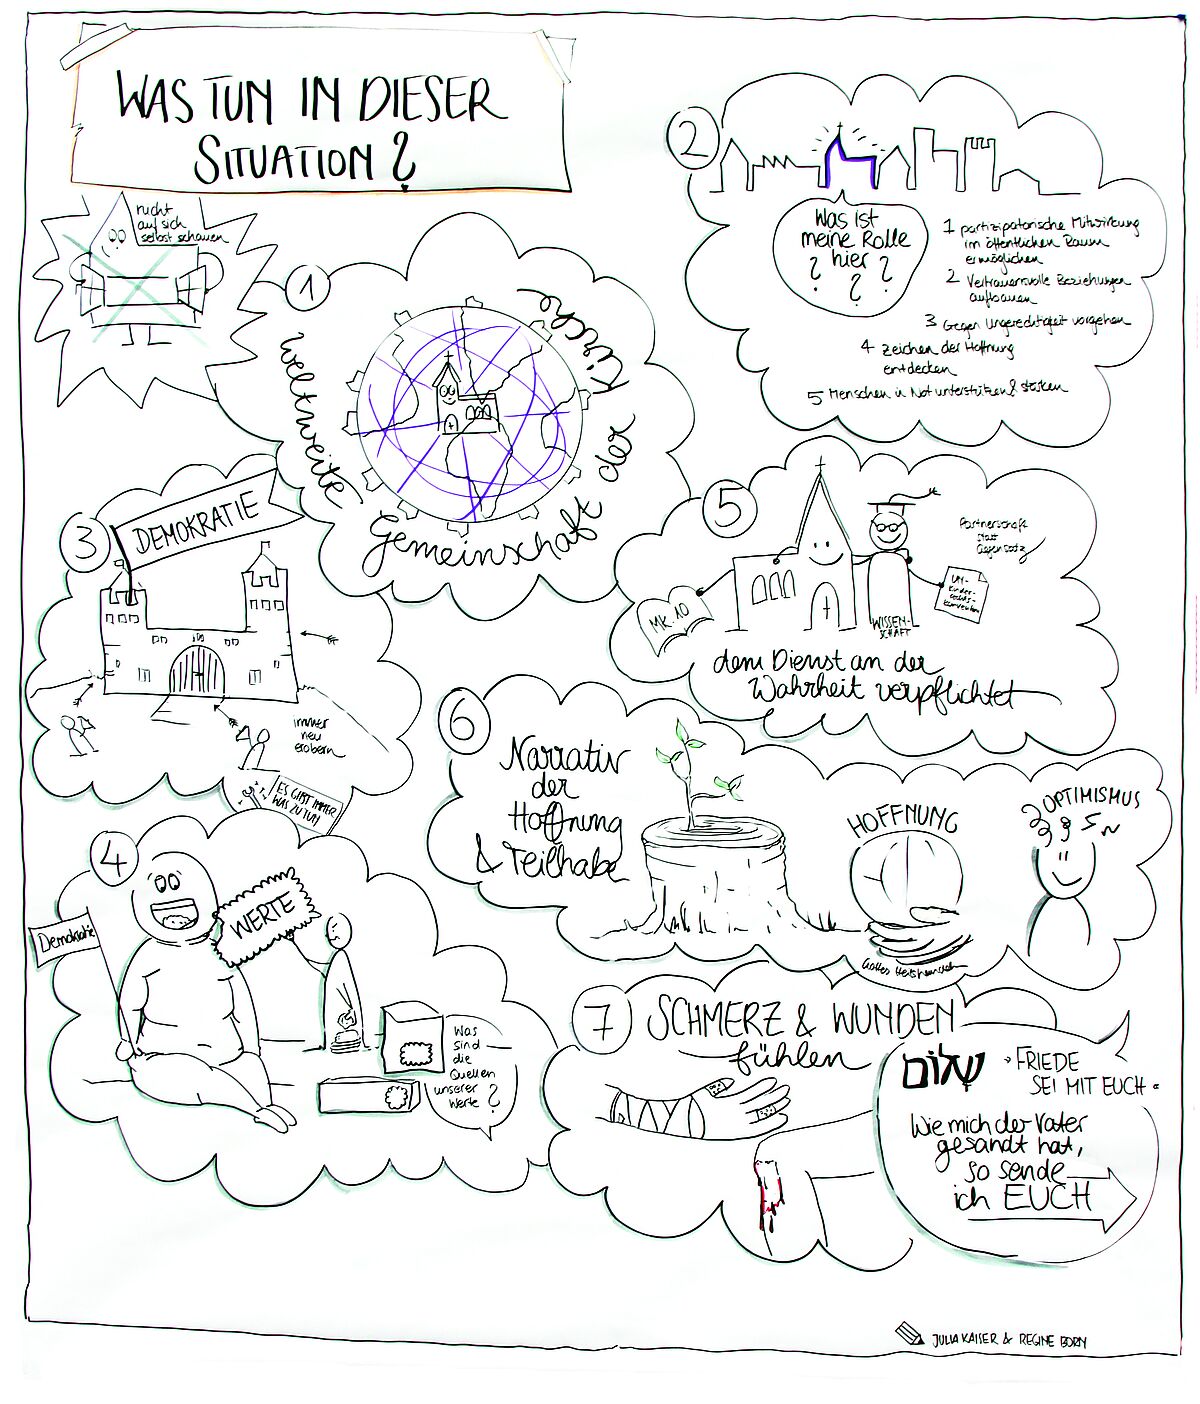 WAS TUN IN DIESER
SITUATION?
nicht
auf sich
selbst schauen
1
weltweite
Gemeinschaft der
Kirche
2
Was ist
meine Rolle
hier?
? ? ?
1 partizipatorische Mitwirkung
im öffentlichen Raum
ermöglichen
2 Vertrauensvolle Beziehungen
aufbauen
3 Gegen Ungerechtigkeit vorgehen
4 Zeichen der Hoffnung
entdecken
5 Menschen in Not unterstützen & stärken
3
DEMOKRATIE
immer
neu
erobern
ES GIBT IMMER
WAS ZU TUN
4
Demokratie
WERTE
Was
sind
die
Quellen
unserer
Werte?
5
MK. 10
WISSEN-
SCHAFT
UN-
Kinder-
rechts-
konvention
Partnerschaft
statt
Gegensatz
dem Dienst an der
Wahrheit verpflichtet
6
Narrativ
der
Hoffnung
& Teilhabe
HOFFNUNG
OPTIMISMUS
7
SCHMERZ & WUNDEN
fühlen
שָׁלוֹם
»FRIEDE
SEI MIT EUCH«
Wie mich der Vater
gesandt hat,
so sende
ich EUCH
JULIA KAISER & REGINE BORN